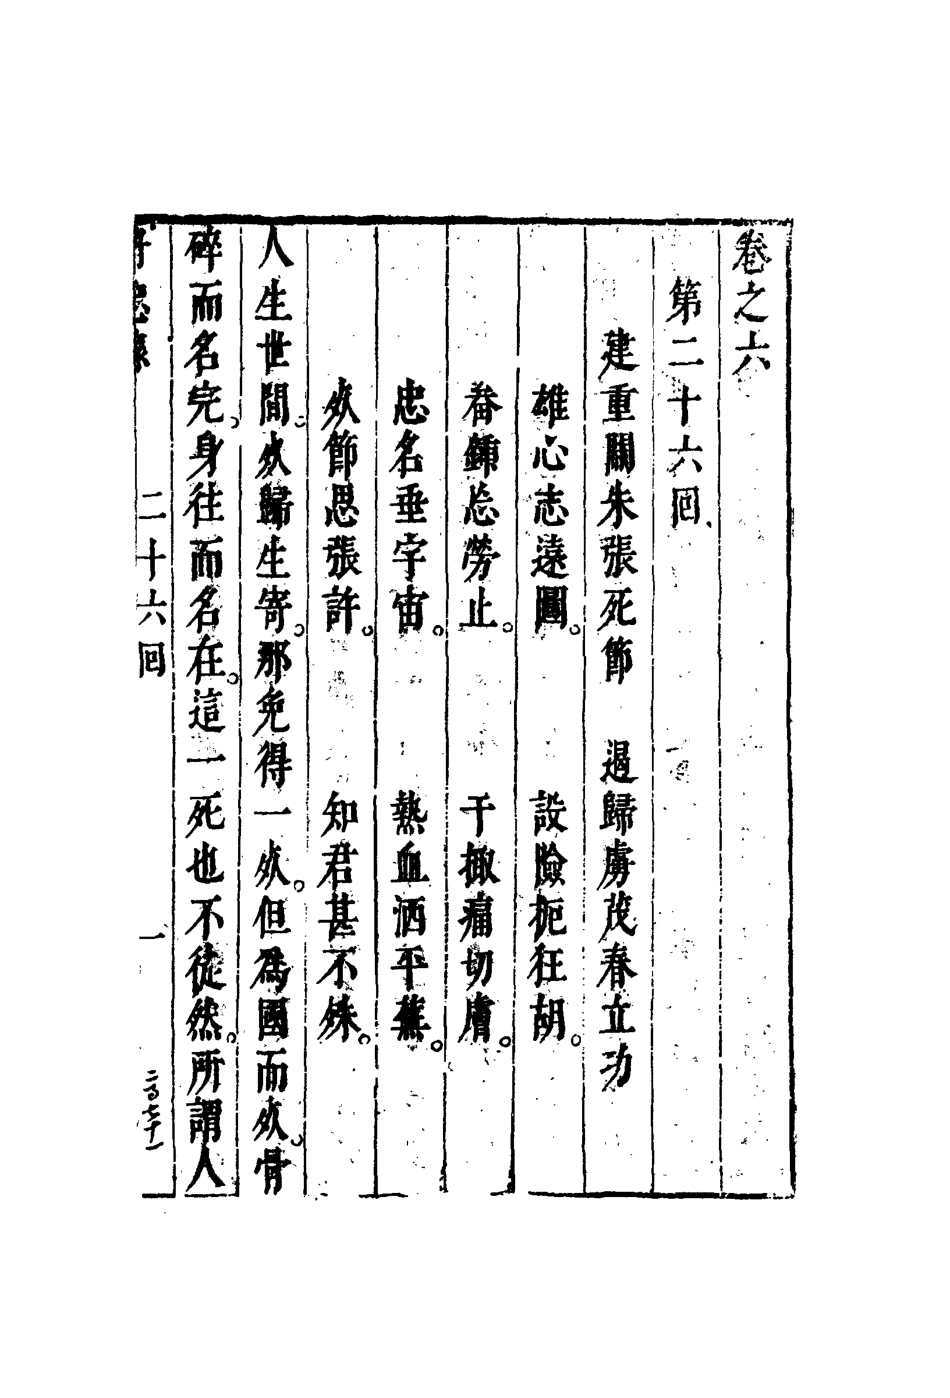 卷之六
第二十六回
建重關朱張死節　過歸虜茂春立功
雄心志遠圖。　設險扼狂胡。
畚鍤忘勞止。　干掫痛切膚。
忠名垂宇宙。　熱血洒平蕪。
死節思張許。　知君甚不殊。
人生世間。死歸生寄。那免得一死。但爲國而死。骨
碎而名完。身往而名在。這一死也不徒然。所謂人
二十六回　一